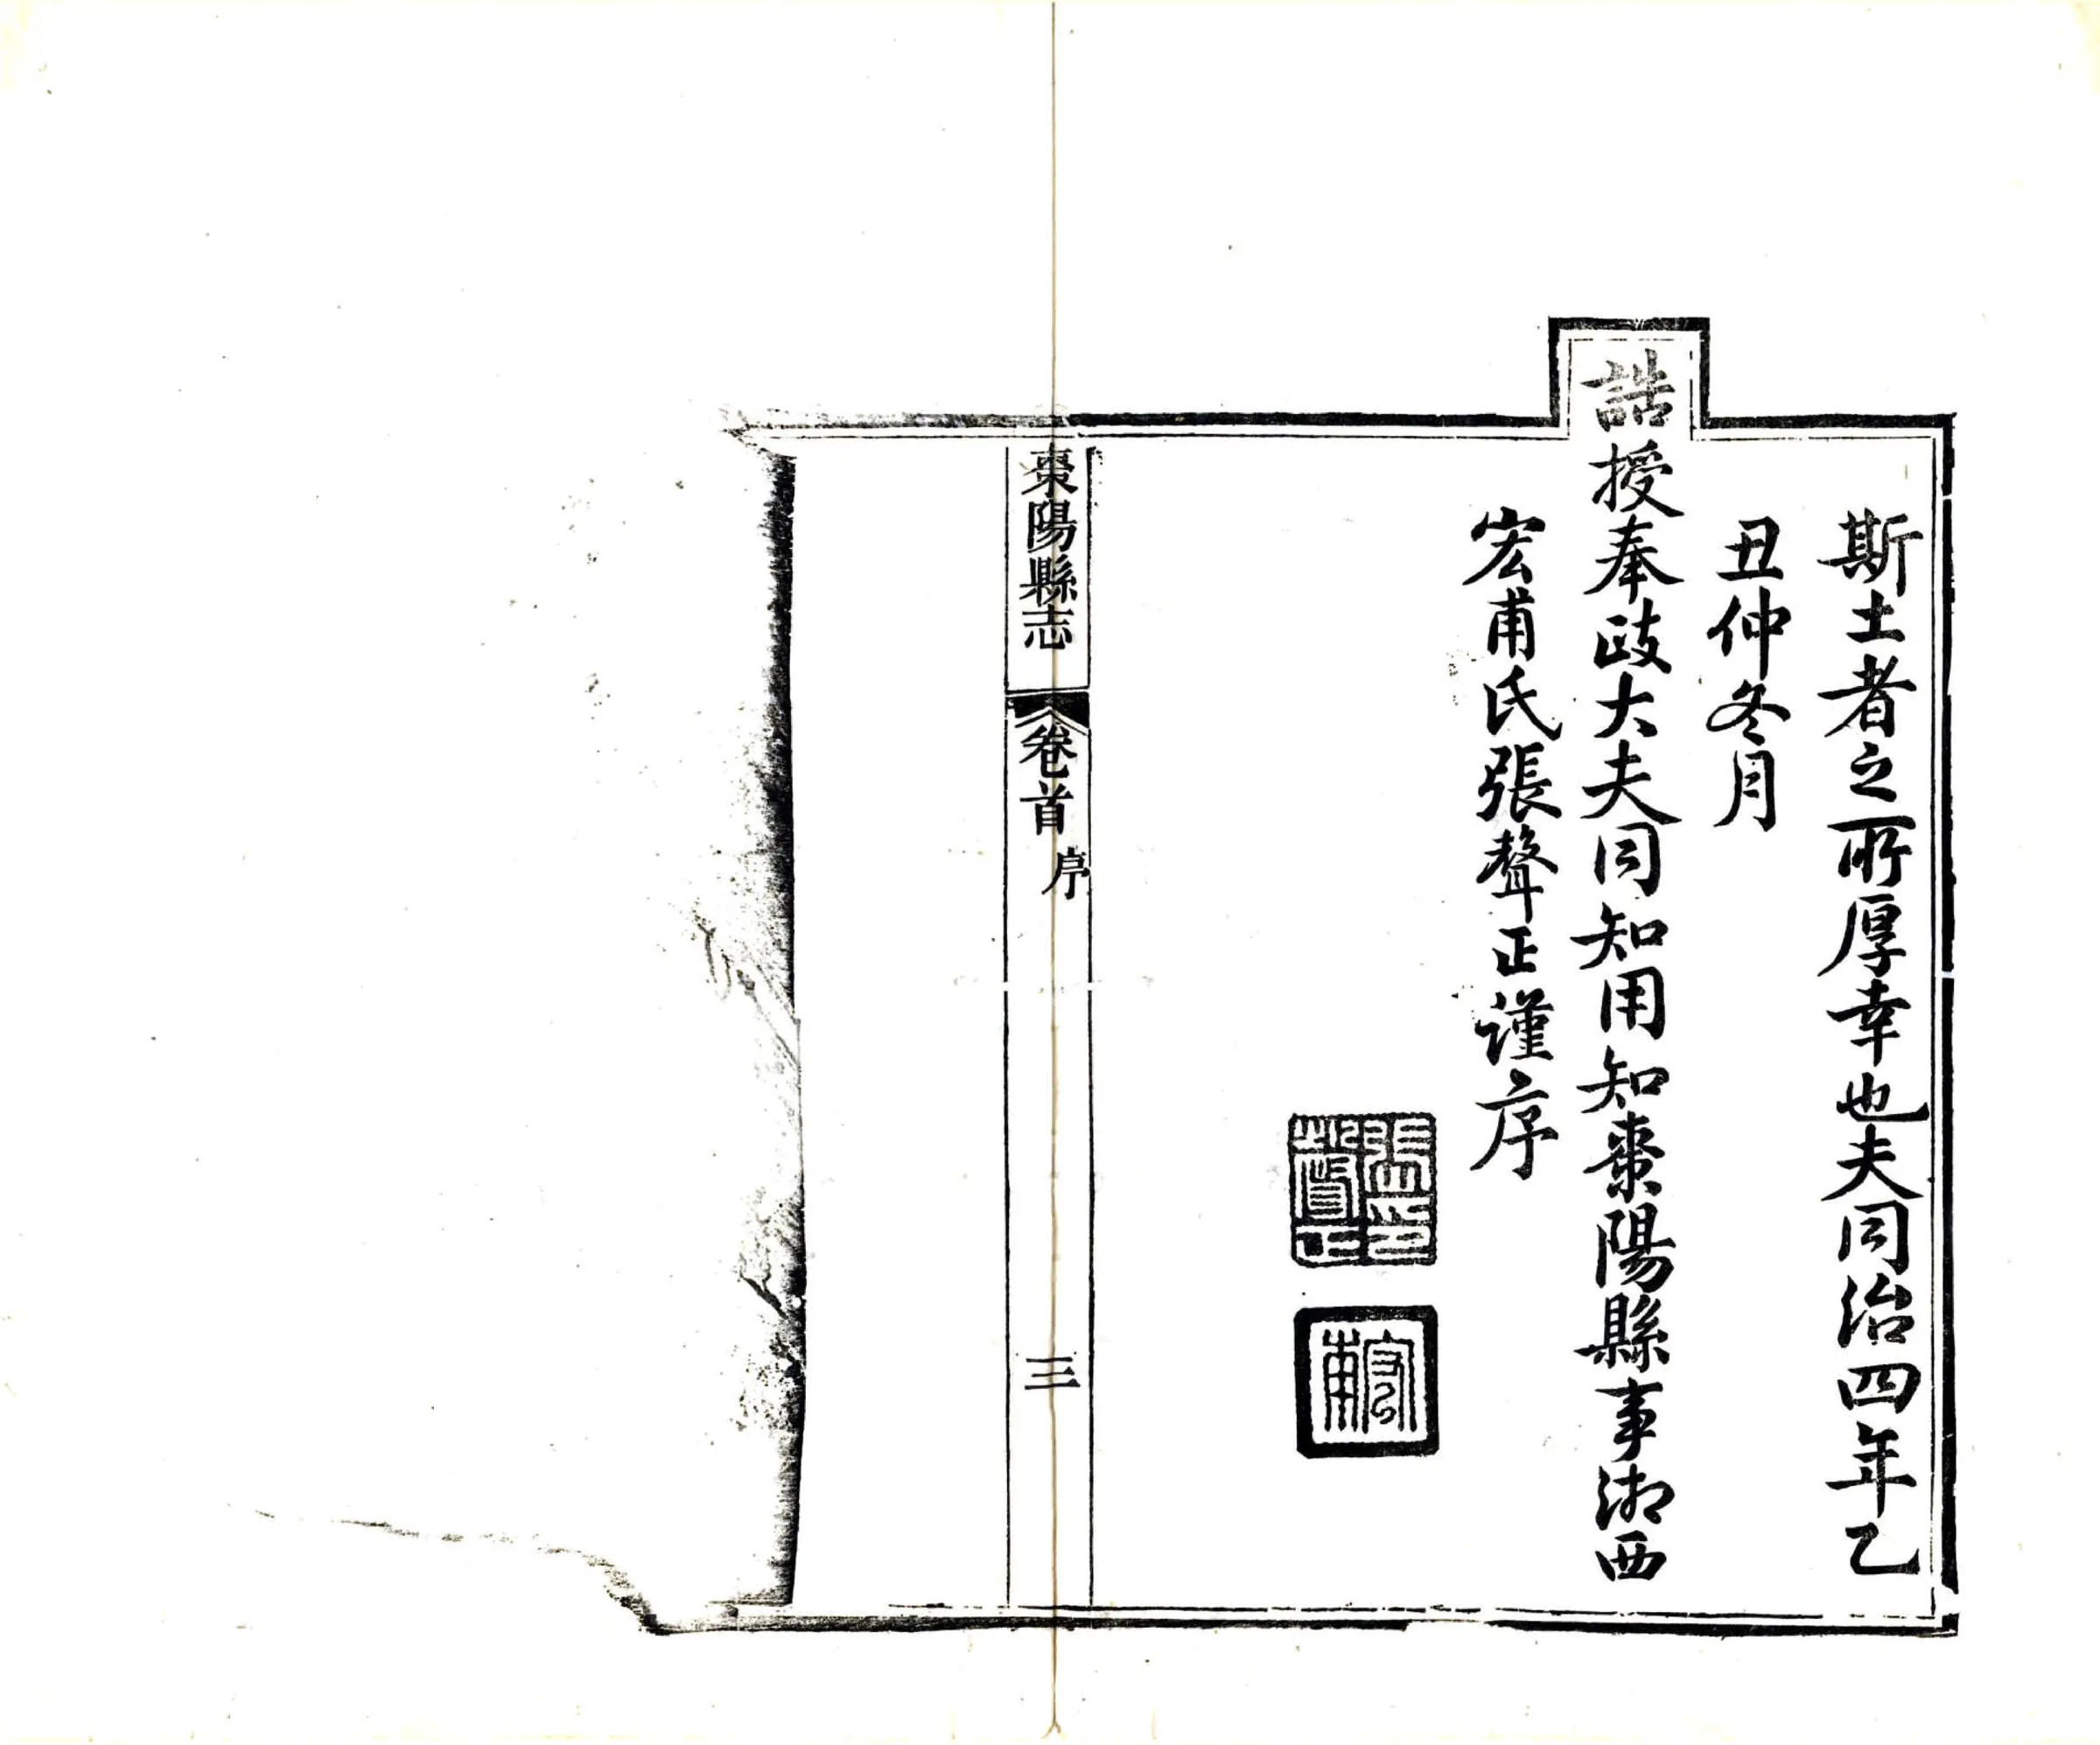 斯土者之所厚幸也夫同治四年乙
丑仲冬月
誥授奉政大夫同知用知棗陽縣事湘西
宏甫氏張聲正謹序
張聲正印
宏甫
棗陽縣志
卷首
序
三